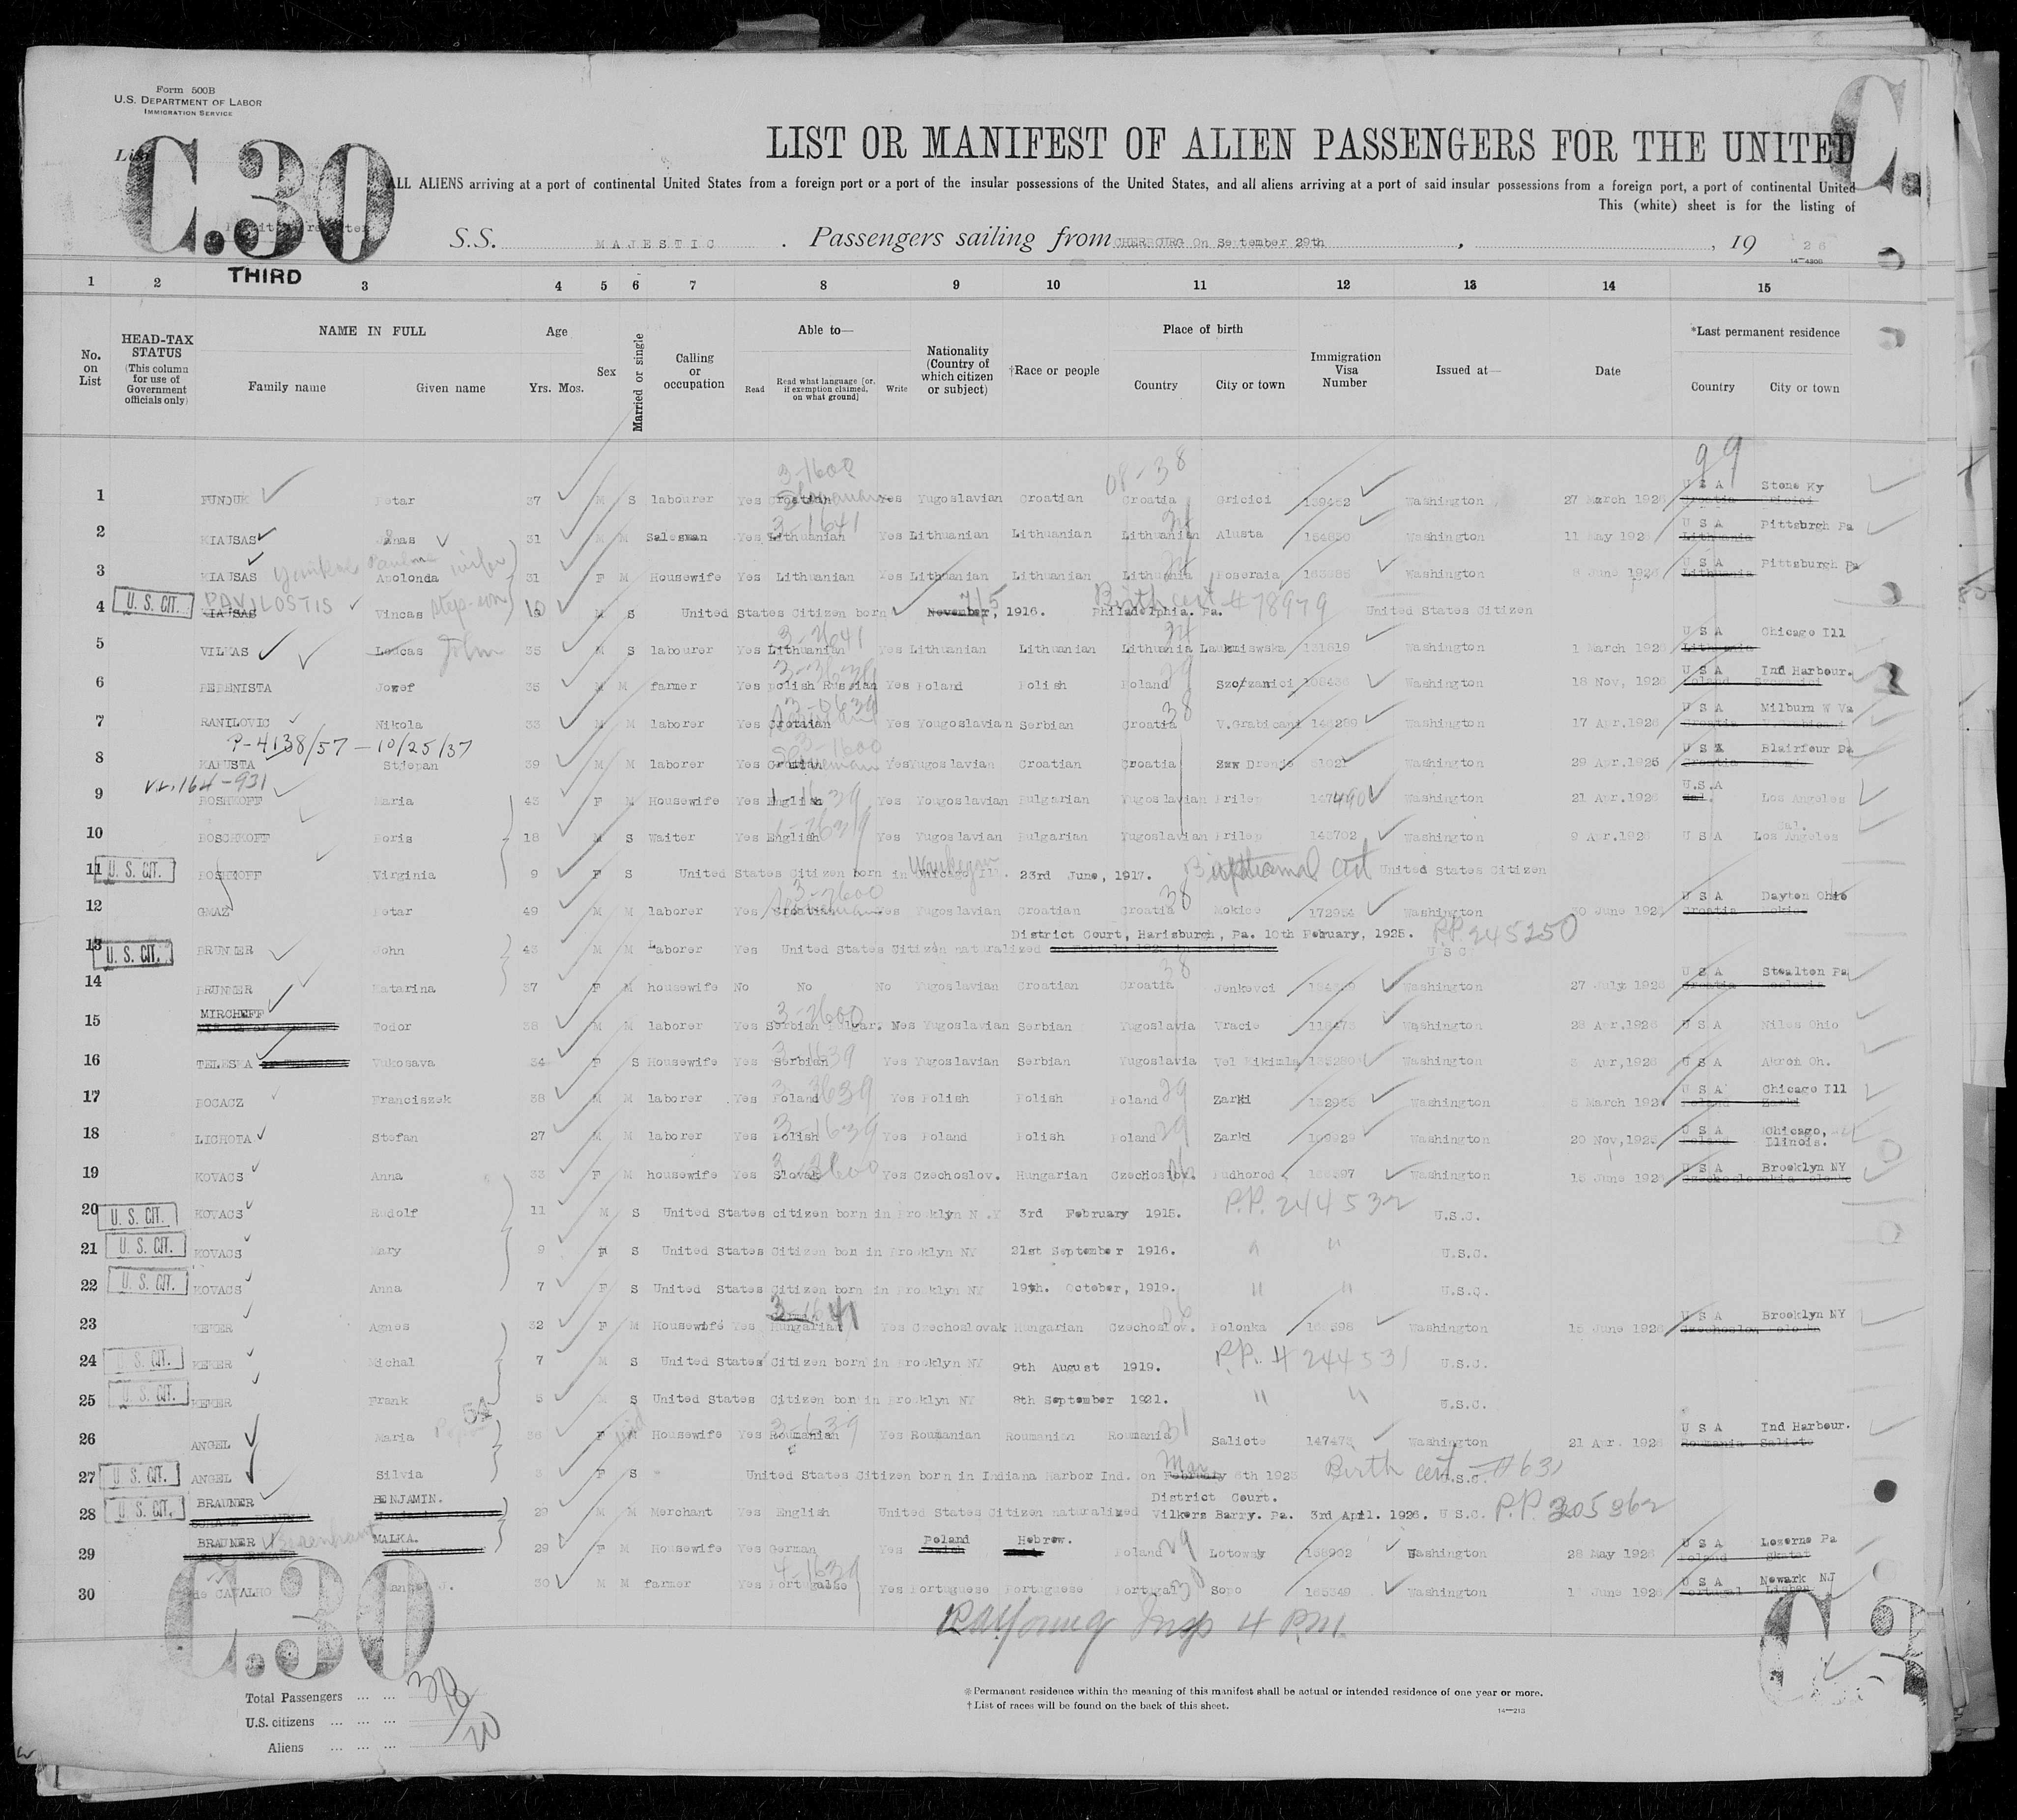 Form 500B
U.S. DEPARTMENT OF LABOR
IMMIGRATION SERVICE
List
C.30
C.
LIST OR MANIFEST OF ALIEN PASSENGERS FOR THE UNITED
ALL ALIENS arriving at a port of continental United States from a foreign port or a port of the insular possessions of the United States, and all aliens arriving at a port of said insular possessions from a foreign port, a port of continental United
This (white) sheet is for the listing of
S.S. MAJESTIC. Passengers sailing from CHERBOURG On September 29th, , 19 26
14—4306
THIRD
1 2 3 4 5 6 7 8 9 10 11 12 13 14 15
No. on List
HEAD-TAX STATUS (This column for use of Government officials only)
NAME IN FULL Family name Given name
Age Yrs. Mos.
Sex
Married or single
Calling or occupation
Able to— Read Read what language [or, if exemption claimed, on what ground] Write
Nationality (Country of which citizen or subject)
†Race or people
Place of birth Country City or town
Immigration Visa Number
Issued at—
Date
*Last permanent residence Country City or town
3-1600 08-38 99
1 FUNDUK Petar 37 M S labourer Yes Croatian Yes Yugoslavian Croatian Croatia Gricici 139462 Washington 27 March 1926 U S A Stone Ky
3-1641
2 KIAUSAS Jonas 31 M M Salesman Yes Lithuanian Yes Lithuanian Lithuanian Lithuanian Alusta Washington 11 May 1926 U S A Pittsburgh Pa Lithuania
3 KIAUSAS Apolonda wife 31 F M Housewife Yes Lithuanian Yes Lithuanian Lithuanian Lithuania Poseraia Washington 8 June 1926 U S A Pittsburgh Pa Lithuania
4 U. S. CIT. PAVILOSTIS KIAUSAS Vincas step-son 10 M S United States Citizen born November, 7/5 1916. Philadelphia. Pa. Birth cert # 78979 United States Citizen
3-2641
5 VILKAS Loucas John 35 M S labourer Yes Lithuanian Yes Lithuanian Lithuanian Lithuania Washington 1 March 1926 U S A Chicago Ill Lithuania
6 BEDENISTA Jozef 35 M M farmer Yes polish Russian Yes Poland Polish Poland 29 Washington 18 Nov, 1926 U S A Ind Harbour. Poland
7 RANILOVIC Nikola 33 M M laborer Yes Crotaian Yes Yougoslavian Serbian Croatia 38 V.Grabicani 143289 Washington 17 Apr.1926 U S A Milburn W Va Croatia
P-4138/57 - 10/25/37
8 KABUSTA Stjepan 39 M M laborer Yes Croatian 3-1600 Yes Yugoslavian Croatian Croatia Washington 29 Apr.1926 U S A Blairfour Pa Croatia
v.v. 164-931
9 BOSHKOFF Maria 43 F M Housewife Yes English Yes Yougoslavian Bulgarian Yugoslavian Prilep 147490 Washington 21 Apr.1926 U.S.A Cal. Los Angeles
10 BOSCHKOFF Boris 18 M S Waiter Yes English Yes Yugoslavian Bulgarian Yugoslavian Prilep 143702 Washington 9 Apr.1926 U S A Los Angeles Cal.
11 U. S. CIT. BOSHKOFF Virginia 9 F S United States Citizen born in Chicago Ill. Waukegan 23rd June, 1917. Baptismal Cert United States Citizen
3-2600
12 GMAZ Petar 49 M M laborer Yes Croatian Yes Yugoslavian Croatian Croatia 38 Mokice 172954 Washington 30 June 1926 U S A Dayton Ohio Croatia Mokice
District Court, Harisburgh, Pa. 10th Febuary, 1925. P.P. 245250
13 U. S. CIT. BRUNCER John 43 M M Laborer Yes United States Citizen naturalized U S C
14 BRUNCER Katarina 37 F M housewife No No No Yugoslavian Croatian Croatia 38 Jenkovci Washington 27 July 1926 U S A Steelton Pa Croatia
15 MIRCHEFF Todor 38 M M laborer Yes Serbian Bulgar. Yugoslavian Serbian Yugoslavia Vracie Washington 28 Apr.1926 U S A Niles Ohio
16 TELESKA Vukosava 34 F S Housewife Yes Serbian Yes Yugoslavian Serbian Yugoslavia Vel Kikinla 135280 Washington Apr,1926 U S A Akron Oh.
17 BOGACZ Franciszek 38 M M laborer Yes Poland Yes Polish Polish Poland 29 Zarki Washington 5 March 1926 U S A Chicago Ill Poland Zarki
18 LICHOTA Stefan 27 M M laborer Yes Polish 3-1639 Yes Poland Polish Poland 29 Zarki 109929 Washington 20 Nov,1925 U S A Chicago, Ilinois. Poland
19 KOVACS Anna 33 F M housewife Yes Slovak Yes Czechoslov. Hungarian Czechoslov. 06 Pudhorod Washington 15 June 1926 U S A Brooklyn NY
20 U. S. CIT. KOVACS Rudolf 11 M S United States citizen born in Brooklyn N.Y 3rd February 1915. P.P. 244532 U.S.C.
21 U. S. CIT. KOVACS Mary 9 F S United States Citizen bon in Brooklyn NY 21st September 1916. " " U.S.C.
22 U. S. CIT. KOVACS Anna 7 F S United States Citizen born in Brooklyn NY 19th. October, 1919. " " U.S.C.
3-1641
23 KEKER Agnes 32 F M Housewife Yes Hungarian Yes Czechoslovak Hungarian Czechoslov. 06 Polonka Washington 15 June 1926 U S A Brooklyn NY
24 U. S. CIT. KEKER Michal 7 M S United States Citizen born in Brooklyn NY 9th August 1919. P.P. # 244531 U.S.C.
25 U. S. CIT. KEKER Frank 5 M S United States Citizen bon in Brooklyn NY 8th September 1921. " " U.S.C.
26 ANGEL Maria 36 F M Housewife Yes Roumanian Yes Roumanian Roumanian Roumania 31 Saliete 147473 Washington 21 Apr. 1926 U S A Ind Harbour. Roumania Saliete
27 U. S. CIT. ANGEL Silvia 3 F S United States Citizen born in Indiana Harbor Ind. on February Mar 6th 1923 Birth cert #631 U.S.C.
28 U. S. CIT. BRAUNER BENJAMIN. 29 M M Merchant Yes English United States Citizen naturalized District Court. Vilkers Barry. Pa. 3rd April. 1926. U S C. P.P. 205362
29 BRAUNER MALKA. 29 F M Housewife Yes German Yes Poland Hebrew. Poland 29 Lotowsy 158902 Washington 28 May 1926 U S A Lozerne Pa Poland
4-1639
30 de CAVALHO J. 30 M M farmer Yes Portugaise Yes Portuguese Portuguese Portugal Sopo 165349 Washington June 1926 U S A Newark NJ Portugal Lisbon
RA Young Insp 4 P.M.
C.30
Total Passengers ... ... 30
U.S. citizens ... ... ... 10
Aliens ... ... ... 20
*Permanent residence within the meaning of this manifest shall be actual or intended residence of one year or more.
†List of races will be found on the back of this sheet.
14—213